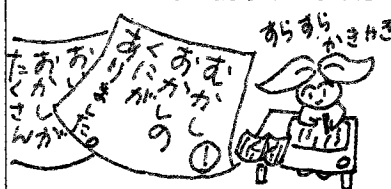 すらすら
むかし
おかしの
くにが
ありました。
①
おい
おかしが
たくさん